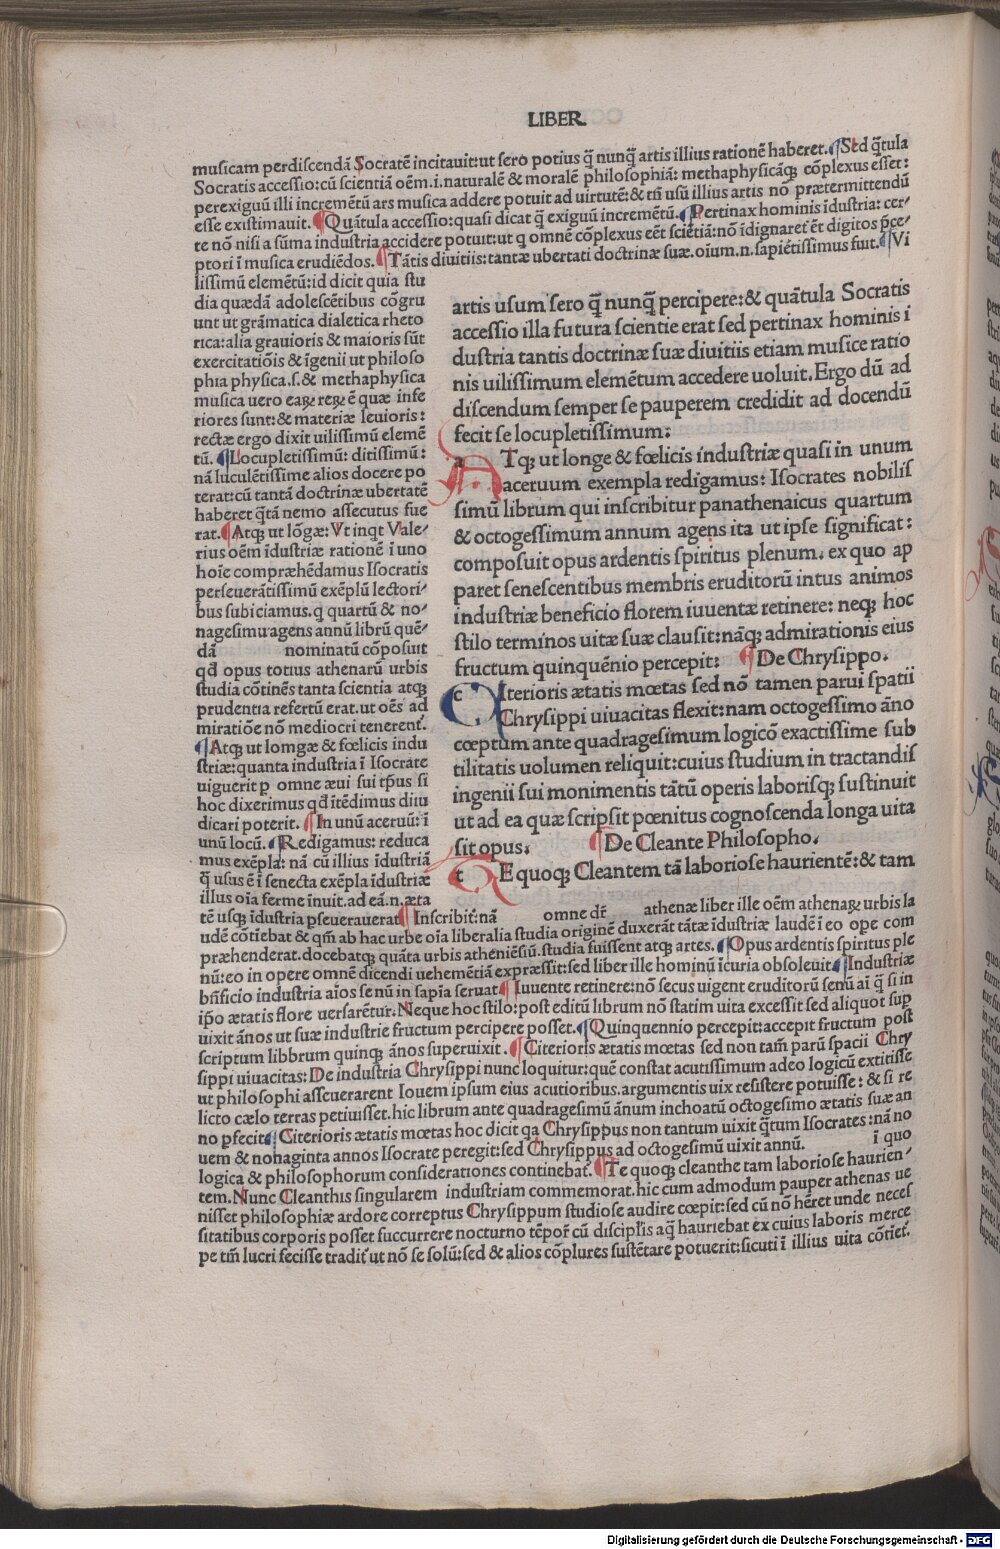 LIBER.
musicam perdiscendā Socratē incitauit:ut sero potius q̄ nunq̄ artis illius rationē haberet. ¶Sed q̄tula
Socratis accessio:cū scientiā oēm.i.naturalē & moralē philosophiā: methaphysicāq; cōplexus esset:
perexiguū illi incremētū ars musica addere potuit ad uirtutē:& tn̄ usū illius artis nō prætermittendū
esse existimauit. ¶Quātula accessio:quasi dicat q̄ exiguū incremētū. ¶Pertinax hominis īdustria: cer-
te nō nisi a sūma industria accidere potuit:ut q omnē cōplexus eēt sciētiā:nō īdignaret̄ ēt digitos p̄ce-
ptori ī musica erudiēdos. ¶Tātis diuitiis:tantæ ubertati doctrinæ suæ.oium.n.sapiētissimus fuit. ¶Vi
lissimū elemētū:id dicit quia stu
dia quædā adolescētibus cōgru
unt ut grāmatica dialetica rheto
rica:alia grauioris & maioris sūt
exercitatiōis & īgenii ut philoso
phia physica.s.& methaphysica
musica uero eaꝝ reꝝ ē quæ infe
riores sunt:& materiæ leuioris:
rectæ ergo dixit uilissimū elemē
tū. ¶Locupletissimū: ditissimū:
nā luculētissime alios docere po
terat:cū tantā doctrinæ ubertatē
haberet q̄tā nemo assecutus fue
rat. ¶Atq; ut lōgæ: Vt inqt Vale-
rius oēm īdustriæ rationē i uno
hoīe compræhēdamus Isocratis
perseuerātissimū exēplū lectori-
bus subiciamus.q quartū & no-
nagesimū agens annū librū quē-
dā nominatū cōposuit
qđ opus totius athenarū urbis
studia cōtinēs tanta scientia atq;
prudentia refertū erat.ut oēs ad
miratiōe nō mediocri tenerent̄.
¶Atq; ut lomgæ & fœlicis indu
striæ:quanta industria ī Isocrate
uiguerit p omne æui sui tp̄us si
hoc dixerimus qđ ītēdimus diiu
dicari poterit. ¶In unū aceruū: ī
unū locū. ¶Redigamus: reduca
mus exēpla: nā cū illius īdustriā
q̄ usus ē ī senecta exēpla īdustriæ
illius oīa ferme inuit.ad eā.n.æta
artis usum sero q̄ nunq̄ percipere:& quātula Socratis
accessio illa futura scientie erat sed pertinax hominis i
dustria tantis doctrinæ suæ diuitiis etiam musice ratio
nis uilissimum elemētum accedere uoluit.Ergo dū ad
discendum semper se pauperem credidit ad docendū
fecit se locupletissimum:
a Tq; ut longe & fœlicis industriæ quasi in unum
aceruum exempla redigamus: Isocrates nobilis
simū librum qui inscribitur panathenaicus quartum
& octogessimum annum agens ita ut ipse significat:
composuit opus ardentis spiritus plenum. ex quo ap
paret senescentibus membris eruditorū intus animos
industriæ beneficio florem iuuentæ retinere: neq; hoc
stilo terminos uitæ suæ clausit:nāq; admirationis eius
fructum quinquēnio percepit: ¶De Chrysippo.
c Iterioris ætatis mœtas sed nō tamen parui spatii
Chrysippi uiuacitas flexit:nam octogessimo āno
cœptum ante quadragesimum logicō exactissime sub
tilitatis uolumen reliquit:cuius studium in tractandis
ingenii sui monimentis tātū operis laborisq; sustinuit
ut ad ea quæ scripsit pœnitus cognoscenda longa uita
sit opus. ¶De Cleante Philosopho.
t E quoq; Cleantem tā laboriose haurientē:& tam
tē usq; īdustria pseuerauerat ¶Inscribit̄:nā omne dr̄ athenæ liber ille oēm athenaꝝ urbis la
udē cōtiebat & qm̄ ab hac urbe oīa liberalia studia originē duxerāt tātæ īdustriæ laudē ī eo ope com
præhenderat.docebatq; quāta urbis atheniēsiū.studia fuissent atq; artes. ¶Opus ardentis spiritus ple
nū:eo in opere omnē dicendi uehemētiā expræssit:sed liber ille hominū īcuria obsoleuit ¶Industriæ
bn̄ficio industria aīos se nū in sapīa seruat ¶Iuuente retinere:nō secus uigent eruditorū senū aī q̄ si in
ip̄o ætatis flore uersarētur.Neque hoc stilo:post editū librum nō statim uita excessit sed aliquot sup
uixit ānos ut suæ industrie fructum percipere posset. ¶Quinquennio percepit:accepit fructum post
scriptum libbrum quinq; ānos superuixit. ¶Citerioris ætatis mœtas sed non tam̄ parū spacii Chry
sippi uiuacitas: De industria Chrysippi nunc loquitur:quē constat acutissimum adeo logicū extitisse
ut philosophi asseuerarent Iouem ipsum eius acutioribus.argumentis uix resistere potuisse: & si re
licto cælo terras petiuisset.hic librum ante quadragesimū ānum inchoatū octogesimo ætatis suæ an
no pfecit ¶Citerioris ætatis mœtas hoc dicit qa Chrysippus non tantum uixit q̄tum Isocrates:nā no
uem & nonaginta annos Isocrate peregit:sed Chrysippus ad octogesimū uixit annū. ī quo
logica & philosophorum considerationes continebat̄. ¶Te quoq; cleanthe tam laboriose haurien-
tem.Nunc Cleanthis singularem industriam commemorat.hic cum admodum pauper athenas ue
nisset philosophiæ ardore correptus Chrysippum studiose audire cœpit:sed cū nō hēret unde neces
sitatibus corporis posset succurrere nocturno tēpor̄ cū discipl̄is aq̄ hauriebat ex cuius laboris merce
pe tm̄ lucri fecisse tradit̄ ut nō se solū:sed & alios cōplures sustētare potuerit:sicuti ī illius uita cōtiet̄.
Digitalisierung gefördert durch die Deutsche Forschungsgemeinschaft - DFG